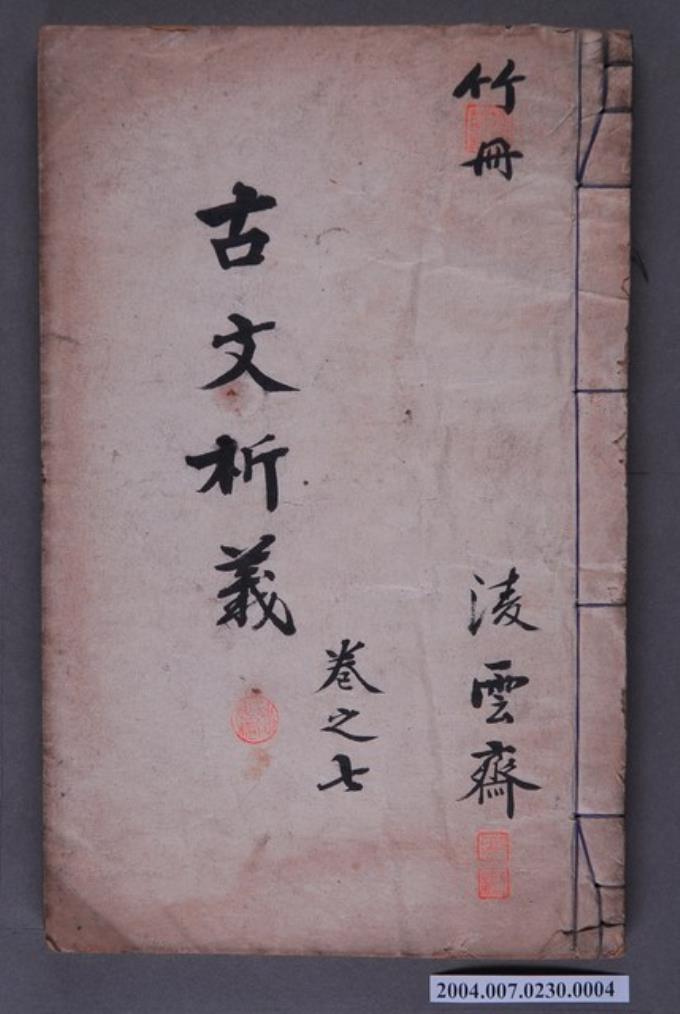 竹冊
淩雲齋
古文析義
卷之七
2004.007.0230.0004